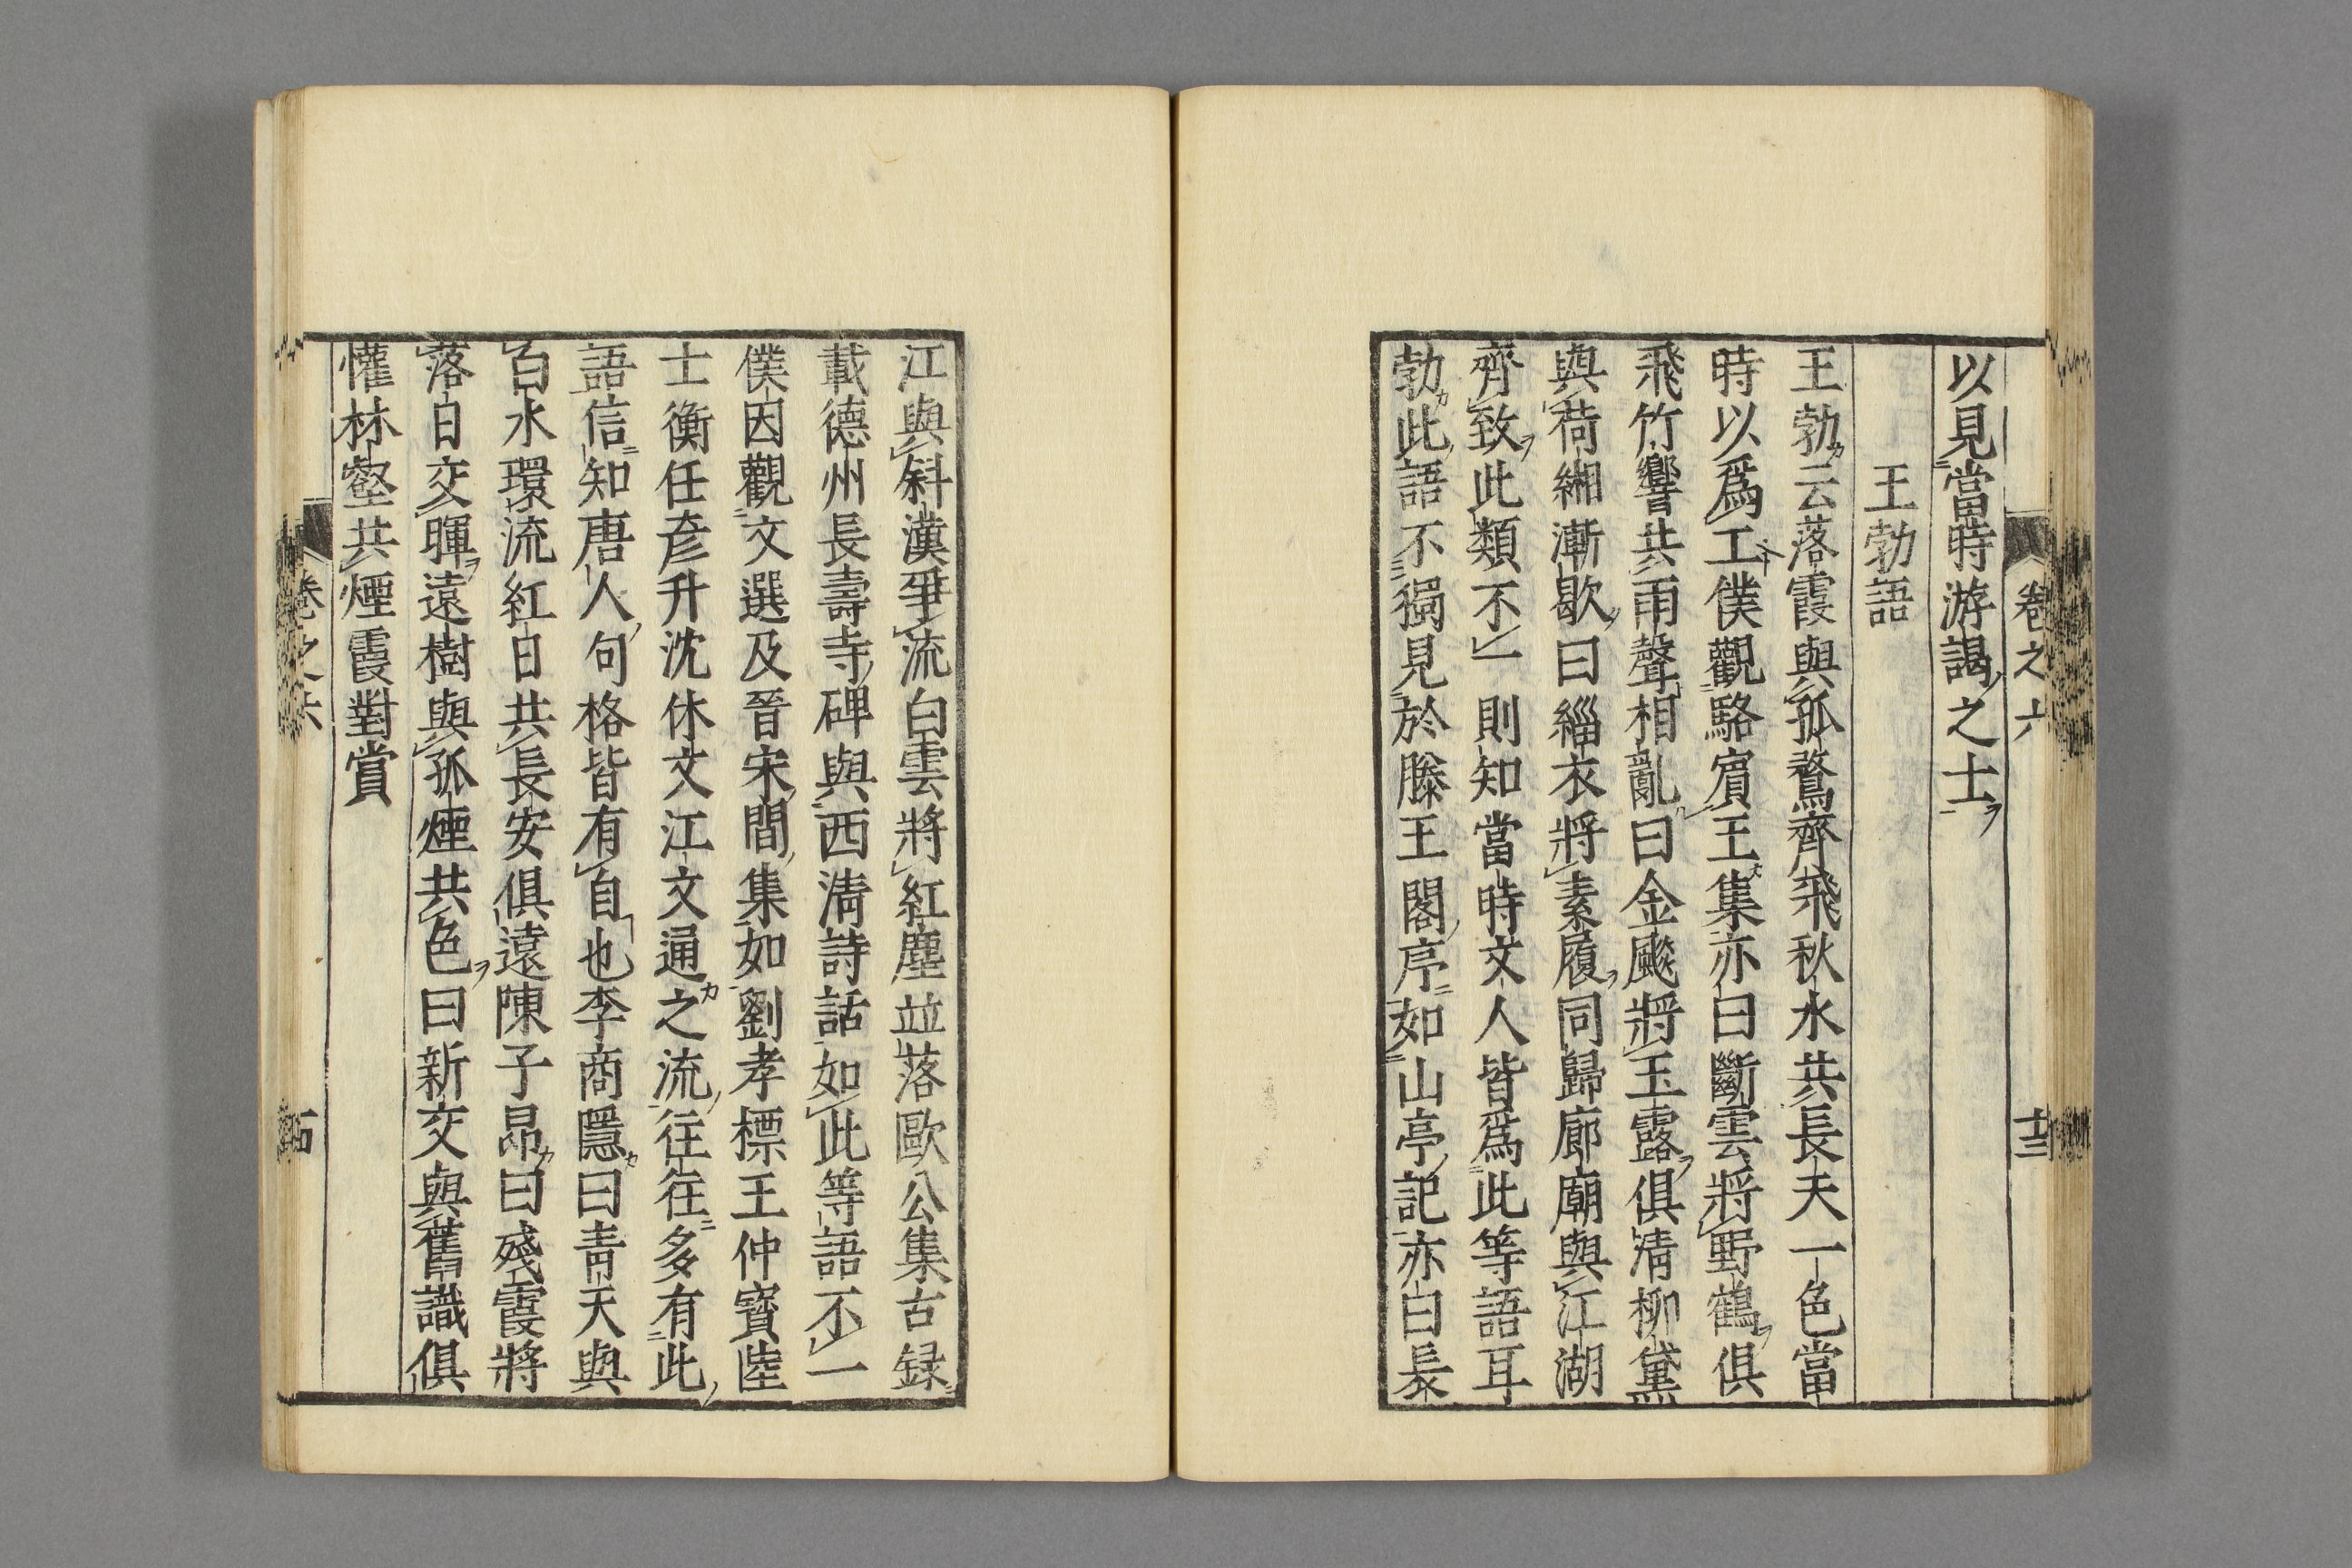 卷之六
十三
以見當時游謁之士
王勃語
王勃云落霞與孤鶩齊飛秋水共長天一色當
時以爲工僕觀駱賓王集亦曰斷雲將野鶴俱
飛竹響共雨聲相亂曰金飈將玉露俱清柳黛
與荷緗漸歇曰緇衣將素履同歸廊廟與江湖
齊致此類不一則知當時文人皆爲此等語耳
勃此語不獨見於滕王閣序如山亭記亦曰長
江與斜漢爭流白雲將紅塵並落歐公集古録
載德州長壽寺碑與西清詩話如此等語不一
僕因觀文選及晉宋間集如劉孝標王仲寶陸
士衡任彦升沈休文江文通之流往往多有此
語信知唐人句格皆有自也李商隱曰青天與
白水環流紅日共長安俱遠陳子昂曰殘霞將
落日交暉遠樹與孤煙共色曰新交與舊識俱
懽林壑共煙霞對賞
卷之六